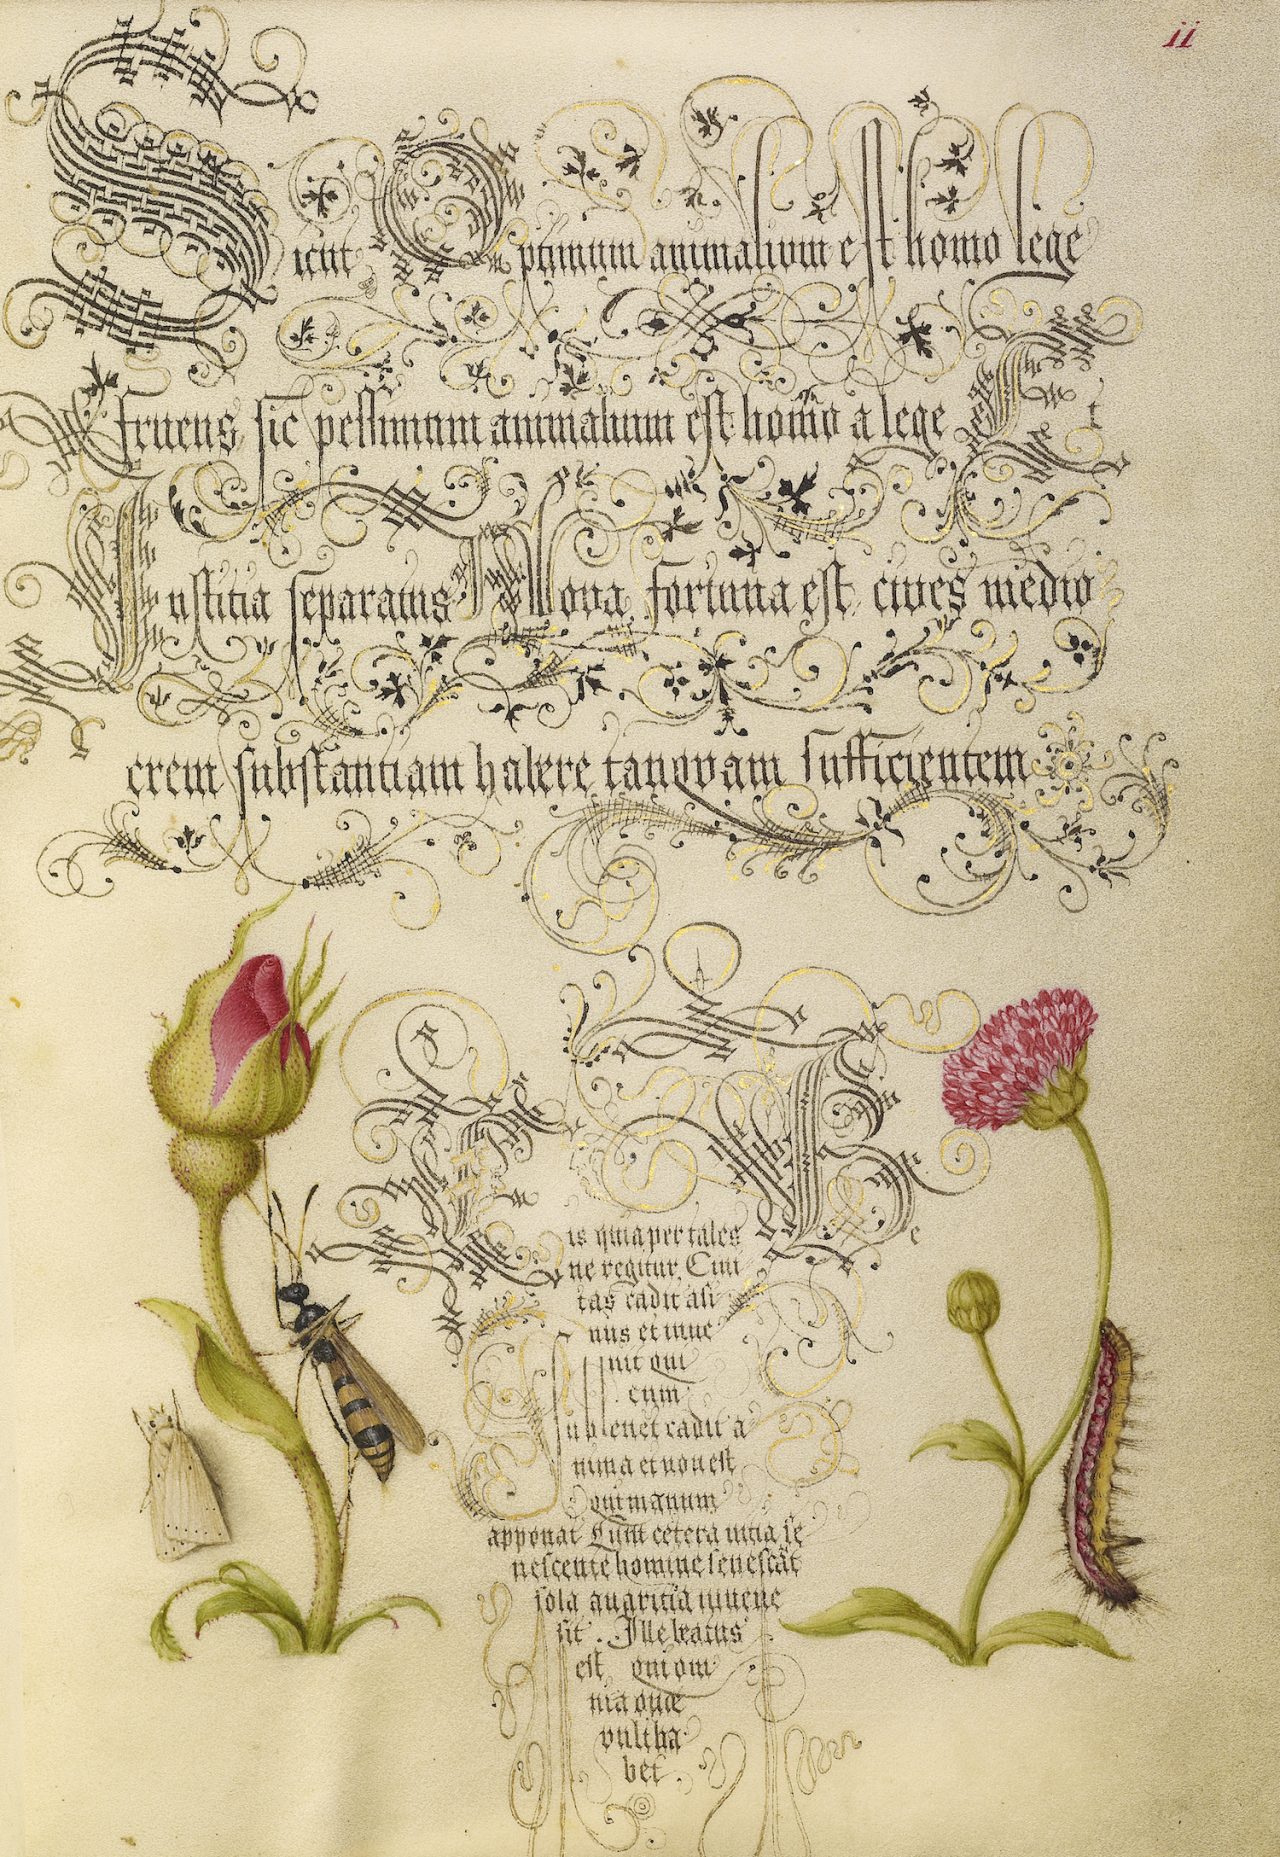 ii
Sicut Optimum animalium est homo lege
fruens, sic pessimum animalium est homo a lege Et
Iustitia separatus Nova fortuna est cives medio
crem substantiam habere tanqvam sufficientem
His quia per tales Be
ne regitur. Civi
tas cadit asi
nus et inve
nit qui
eum
sublevet cadit a
nima et non est
qui manum
apponat Cum cetera vitia se
nescente homine senescāt
sola avaritia iuvene
sit. Ille beatus
est qui om
nia quae
vult ha
bet.